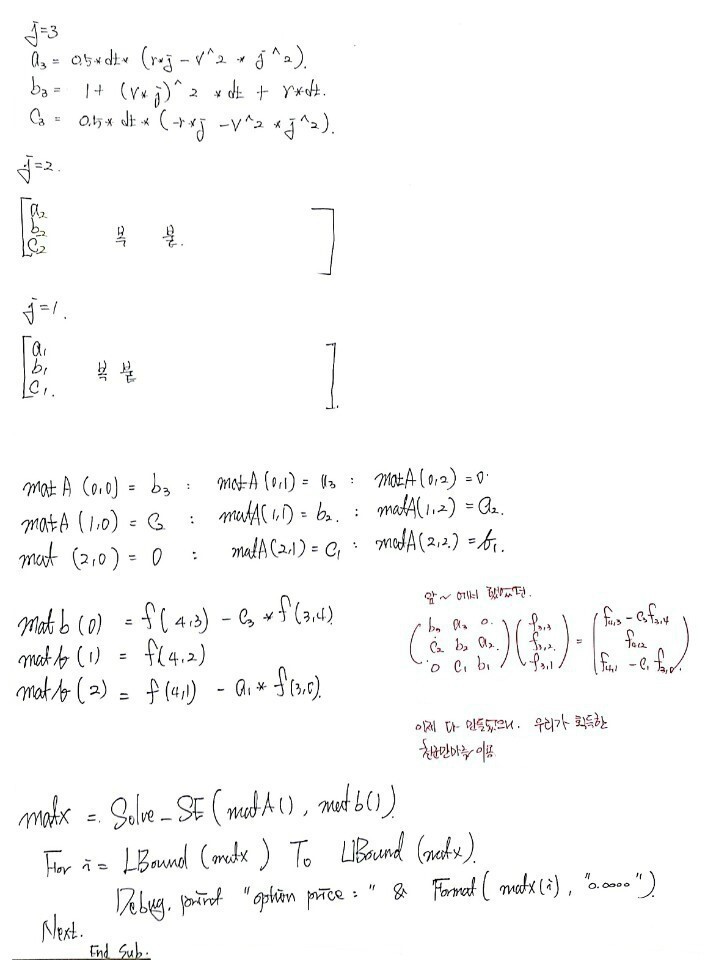 j=3
a₃ = 0.5*dt*(r*j - v^2 * j^2).
b₃ = 1+ (v*j)^2 *dt + r*dt.
c₃ = 0.5*dt*(-r*j -v^2*j^2).
j=2.
a₂
b₂ 복 붙.
c₂
j=1.
a₁
b₁ 복 붙
c₁.
matA (0,0) = b₃ : matA (0,1) = a₃ : matA (0,2) = 0.
matA (1,0) = c₂ : matA(1,1) = b₂. : matA(1,2) = a₂.
mat (2,0) = 0 : matA(2,1) = c₁ : matA(2,2) = b₁.
matb (0) = f(4,3) - c₃ * f(3,4)
matb (1) = f(4,2)
matb (2) = f(4,1) - a₁ * f(3,0).
앞~ 에서 했었던.
b₃ a₃ 0. f₃,₃ = f₄,₃ - c₃f₃,₄
c₂ b₂ a₂. f₃,₂. f₄,₂
0 c₁ b₁ f₃,₁ f₄,₁ - c₁ f₃,₀.
이제 다 만들었으니. 우리가 획득한
이용
matx = Solve_SE (matA() , matb())
For i = LBound (matx) To UBound (matx).
Debug. print "option price : " & Format( matx(i) , "0.0000")
Next.
End Sub.